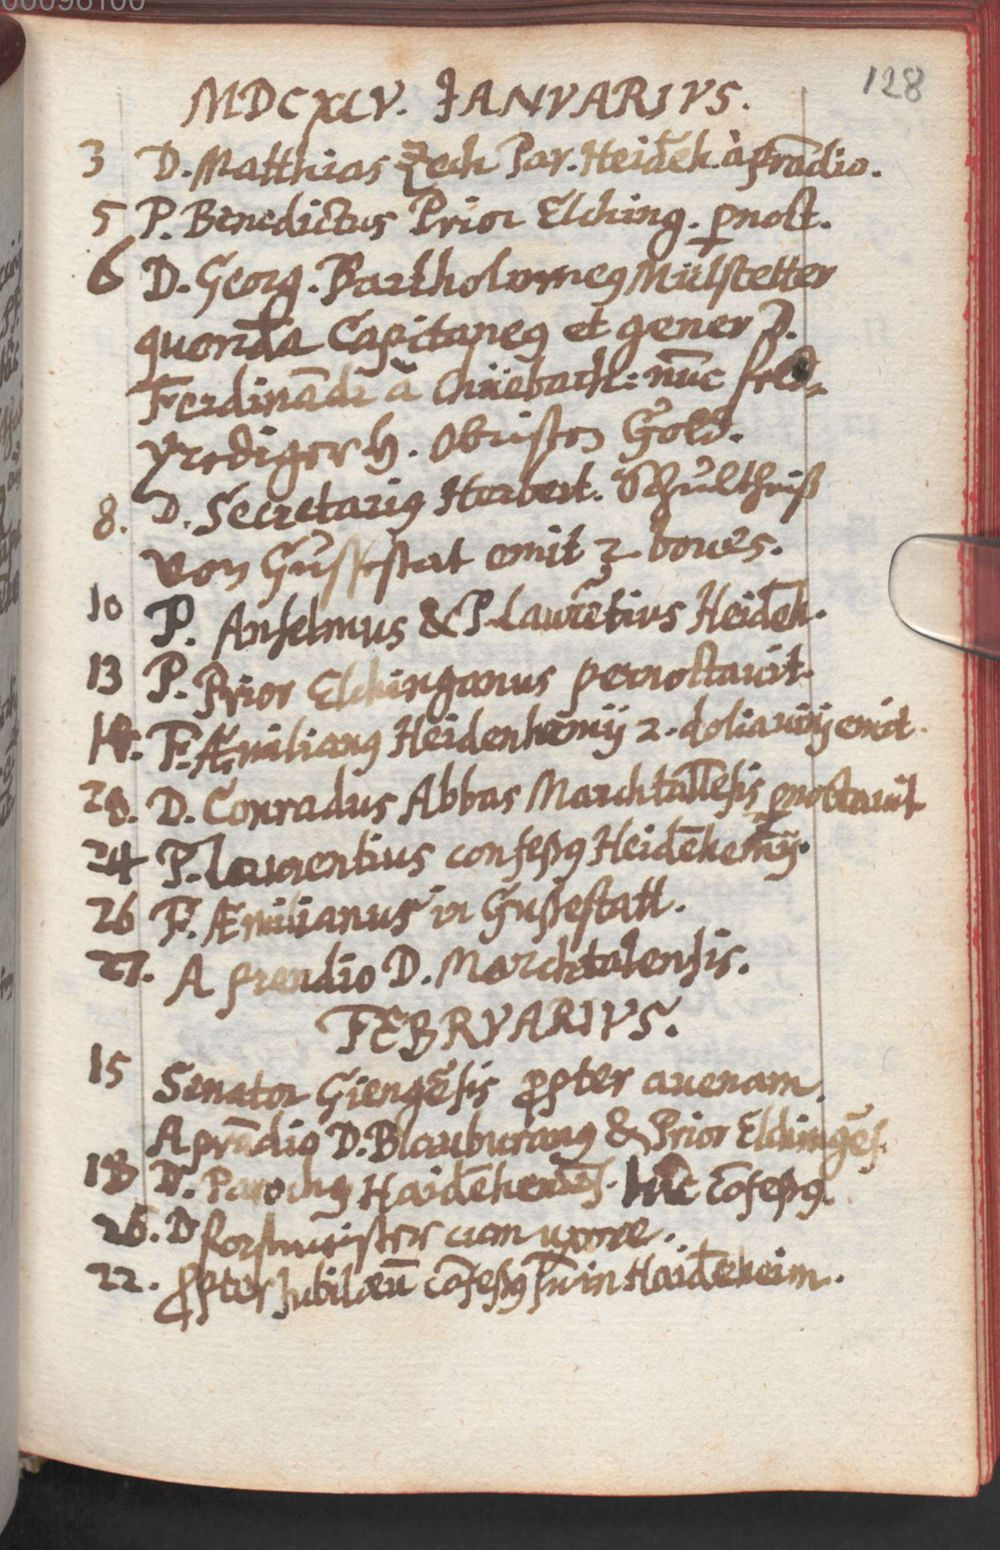 00096100
128
MDCXLV. IANVARIVS.
3 D. Matthias Zech Par. Heidēh. à prādio.
5 P. Benedictus Prior Elching. pnoct.
6 D. Georg. Bartholomeg Mülstetter
quondā Capitaneg et gener D.
Ferdinādi à Chüebach: nūc feld-
prediger h. Obristen Gold.
8. D. Secretarig Herbert. Schultheiß
von Gussestat emit 2 boues.
10 P. Anselmus & P Laurētius Heidēh.
13 P. Prior Elchinganus pernoctauit.
P. Æmiliang Heidenhemij 2. dolia uinj emit.
D. Conradus Abbas Marchtallēsis pnoctauit
24 P. Laurentius confeßg Heidēhemij.
26 P. Æmilianus in Gußestatt.
27. A prandio D. Marchtalensis.
FEBRVARIVS.
15 Senator Giengēsis ppter auenam.
A prādio D. Blauburang & Prior Elchingēs.
18 D. Parochg Haidēhemēs. hūc cōfeßg.
D forstmeister cum uxore.
22. ppter Jubilæū cōfeßg in Haidēheim.